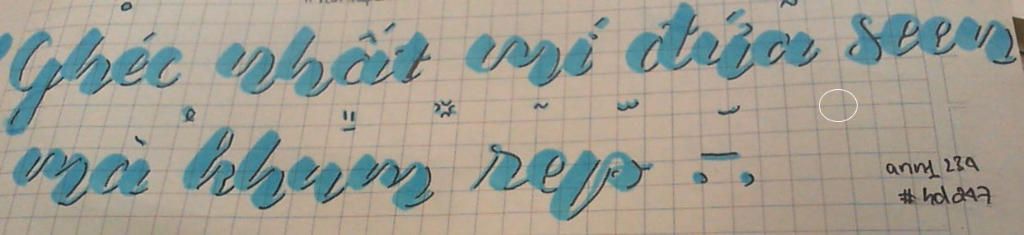 Ghéc nhất mí đứa seen
mà khum rep
ann1_234
#hdd247